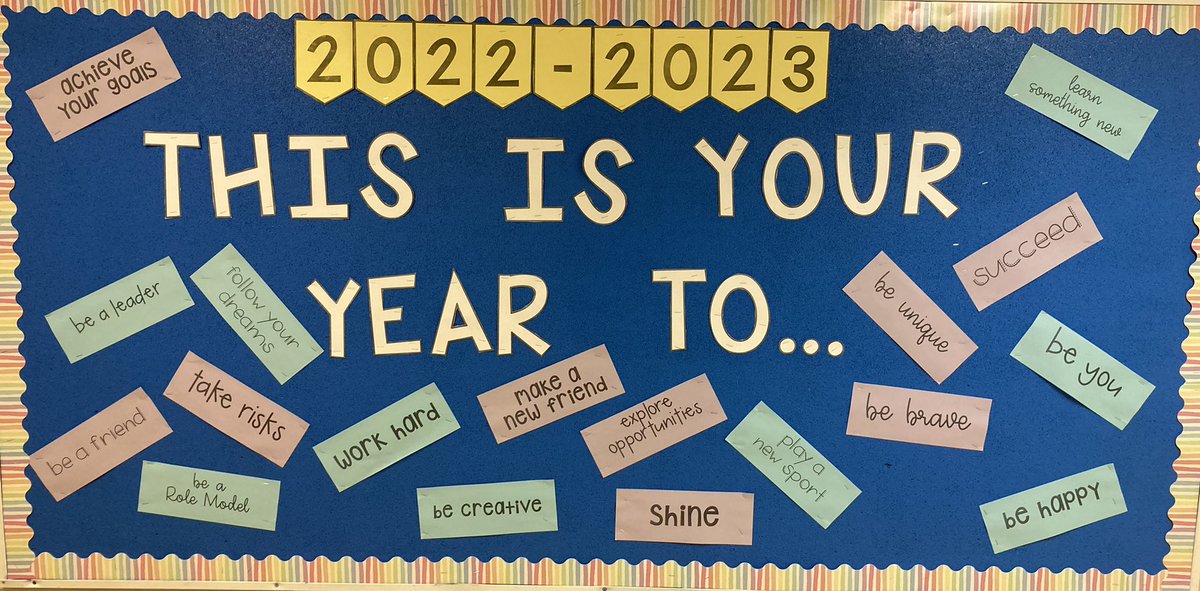 2022-2023
THIS IS YOUR
YEAR TO...
achieve
your goals
learn
something new
succeed
be a leader
follow your
dreams
be unique
be you
take risks
make a
new friend
be a friend
work hard
explore
opportunities
be brave
play a
new sport
be a
Role Model
be creative
Shine
be happy